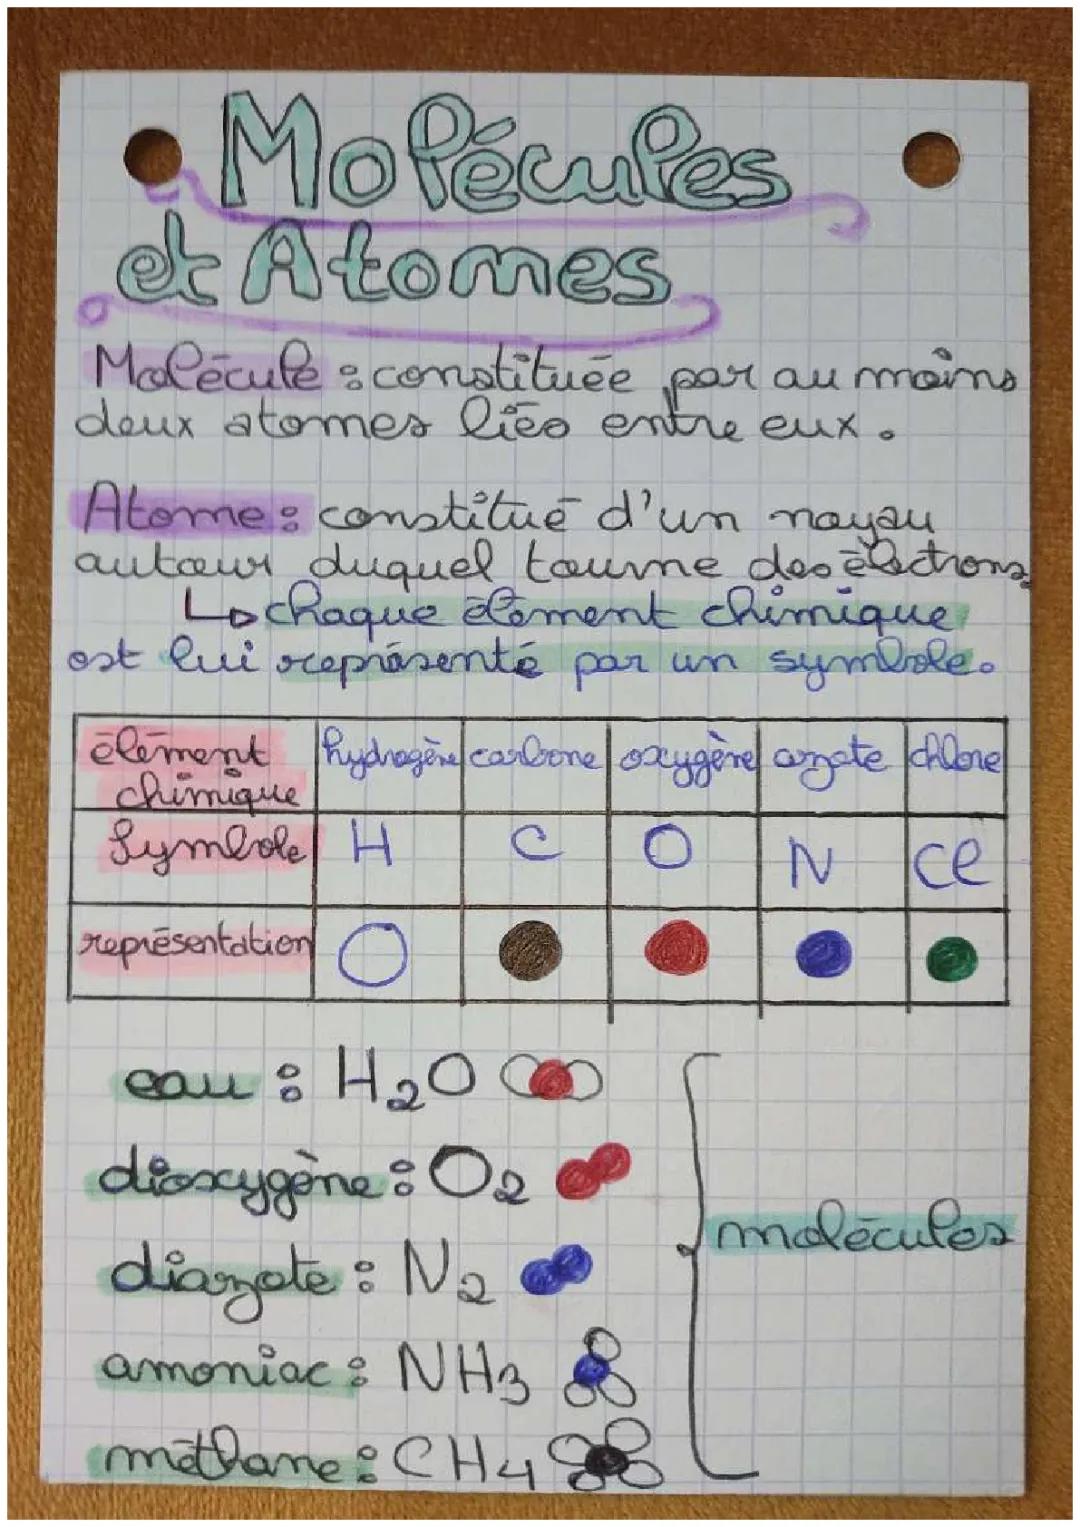 Molécules
et Atomes
Molécule : constituée par au moins
deux atomes liés entre eux.
Atome : constitué d'un noyau
autour duquel tourne des électrons
↳ chaque élément chimique
est lui représenté par un symbole.
élément chimique hydrogène carbone oxygène azote chlore
Symbole H C O N Cl
représentation
eau : H2O
dioxygène : O2
diazote : N2
molécules
amoniac : NH3
méthane : CH4